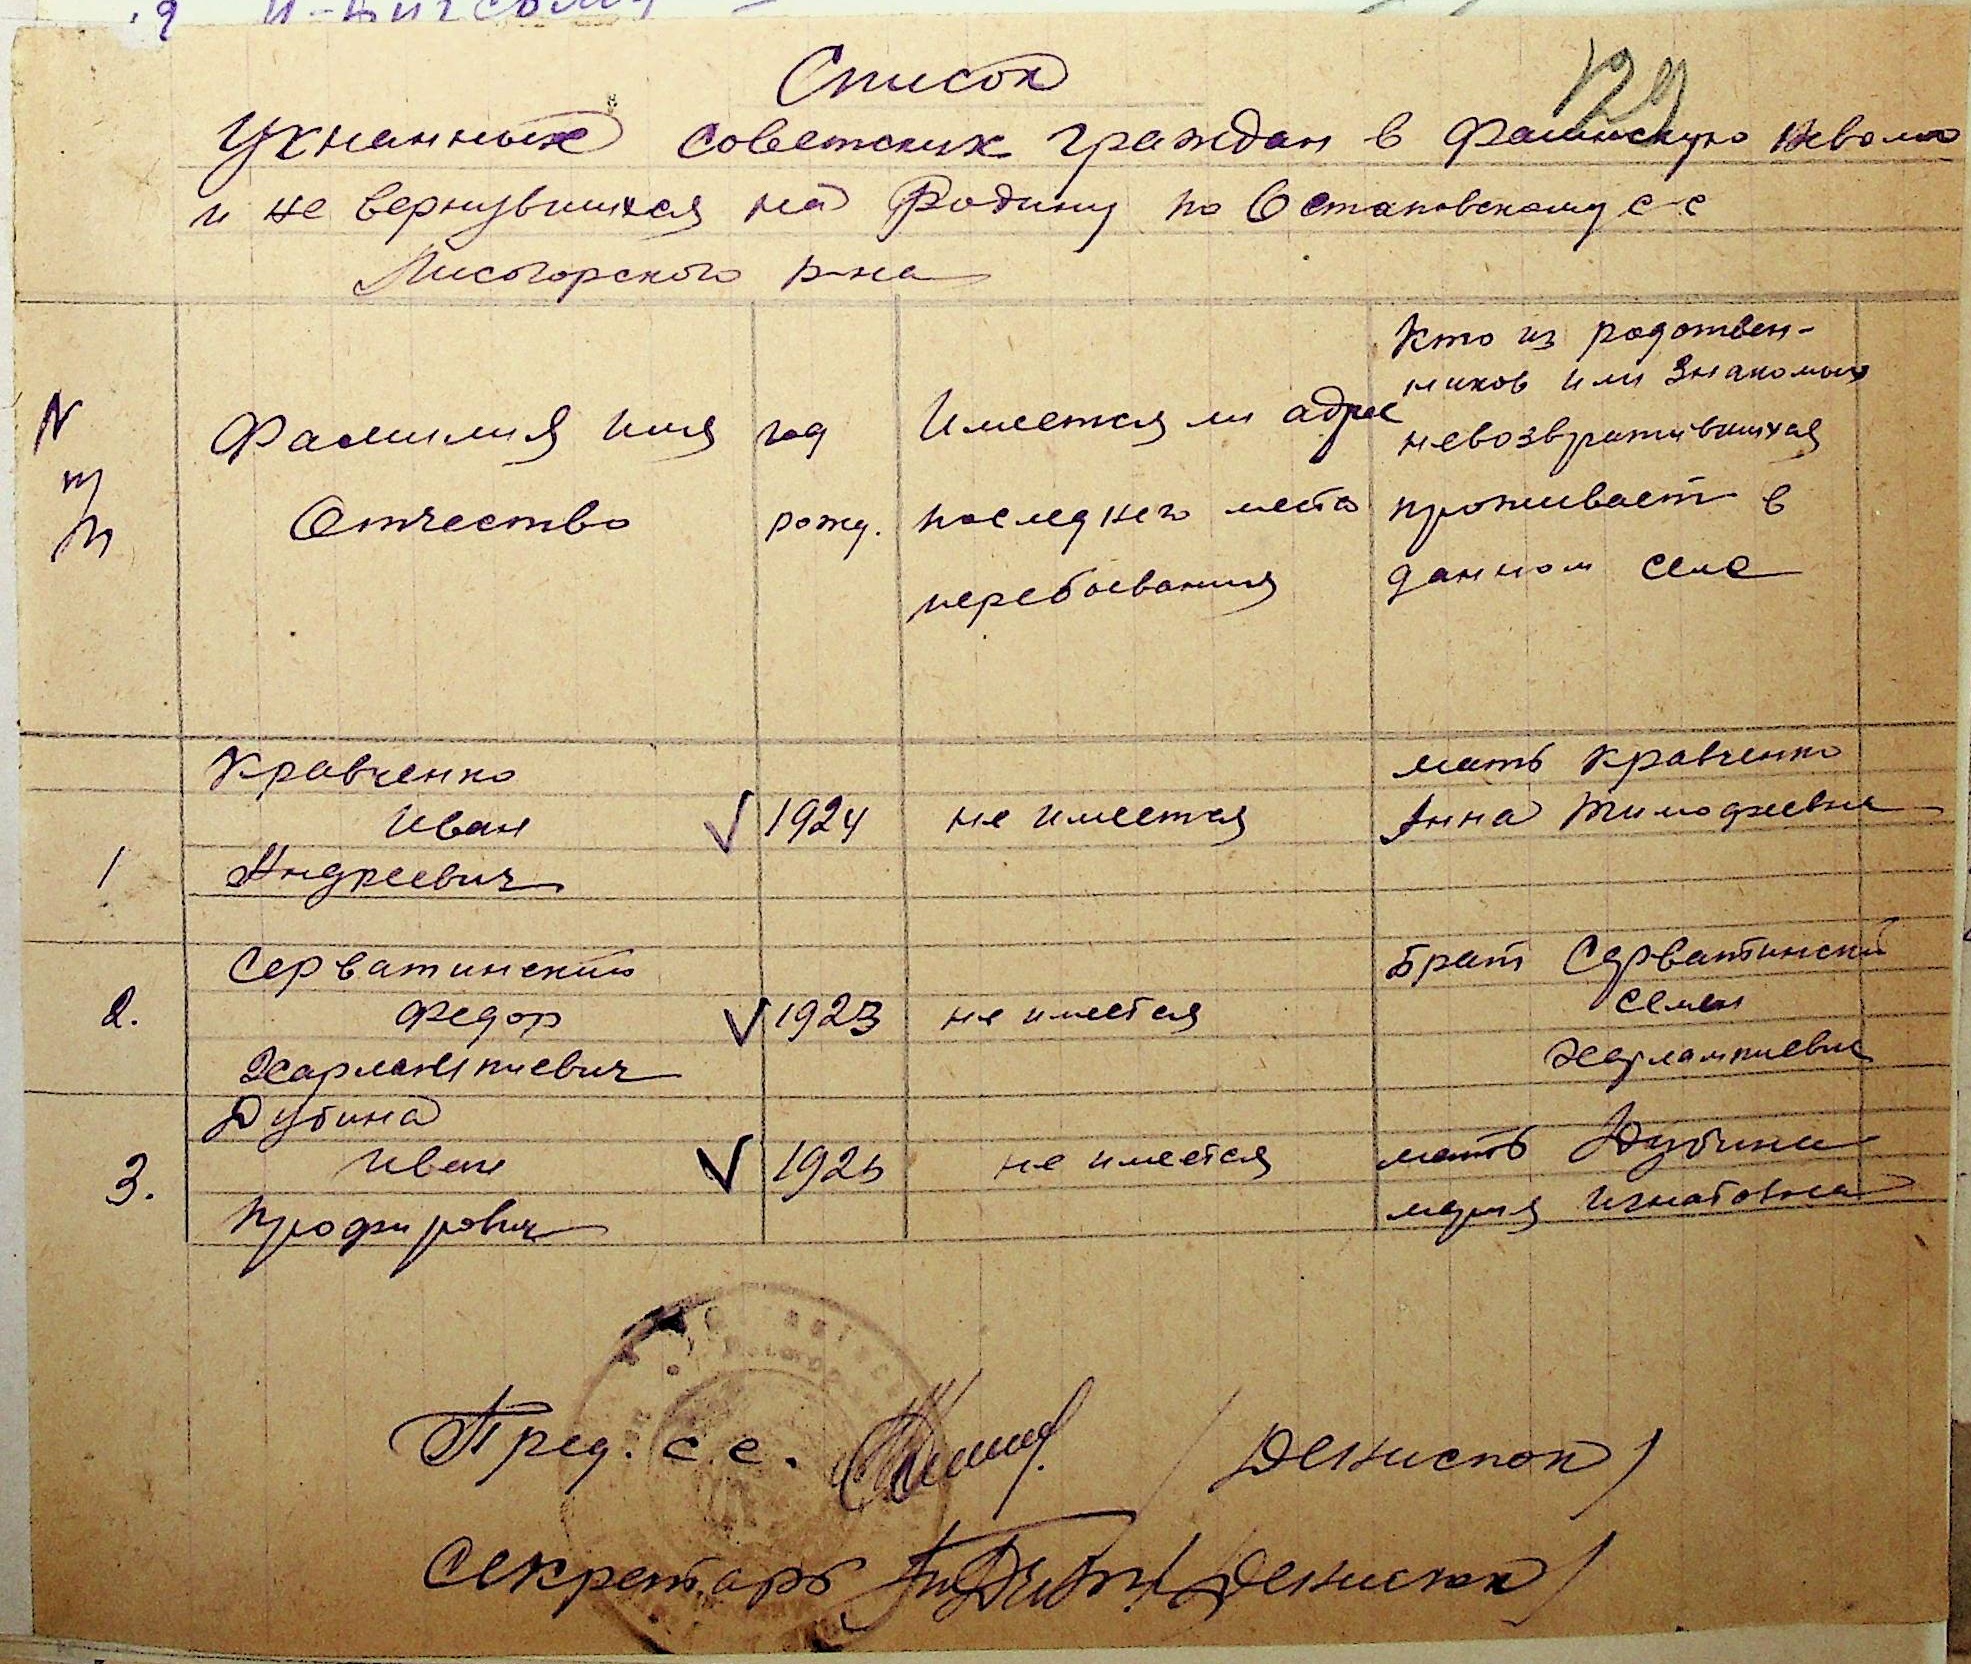 Список
129
Укнанных советских граждан в Фашискую неволю
и не вернувшихся на Родину по Остаповскому с-с
Лисогорского р-на
N
п/п
Фамилия имя
Отчество
год
рожд.
Имеется ли адрес
последнего места
перебывания
Кто из родствен-
ников или знакомых
невозвратившихся
проживает в
данном селе
1
Кравченко
Иван
Андреевич
√ 1924
не имеется
мать Кравченко
Анна Тимофеевна
2.
Серватинский
Федор
Харлампиевич
√ 1923
не имеется
Брат Серватинский
Семен
Харлампиевич
3.
Дубина
Иван
Профирович
√ 1925
не имеется
мать Дубина
мария Игнатовна
Пред. с.с. /Денисюк/
Секретарь /Денисюк/